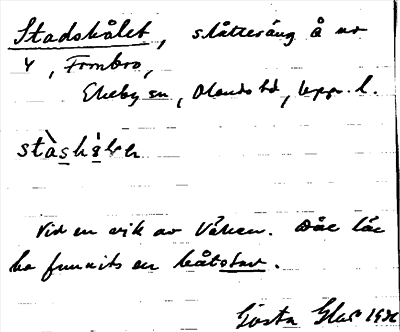 Stadshålet, slåtteräng å nr
4, Frmbro,
Ekeby sn, Olands hd, Uppl. l.
Vid en vik av Väken. Där lär
ha funnits en båtstav.
Gösta 1936